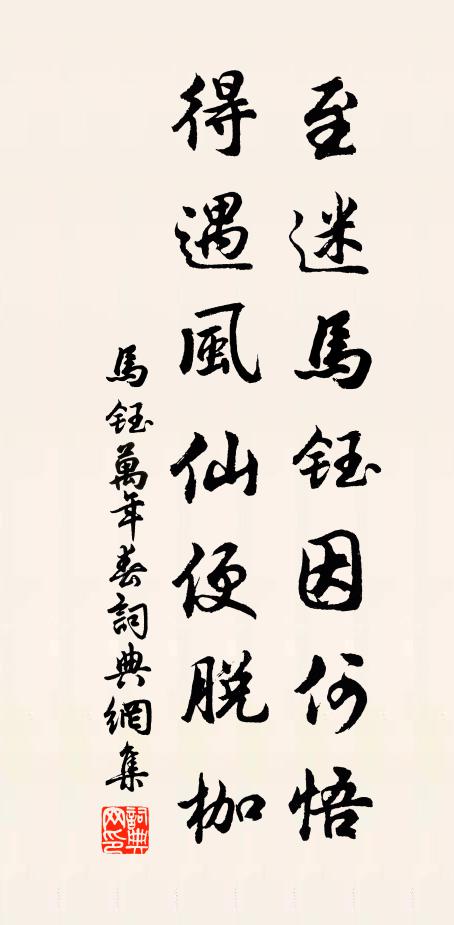 至迷馬鈺因何悟
得遇風仙便脫枷
馬鈺萬年春詞典網集
詞典網印